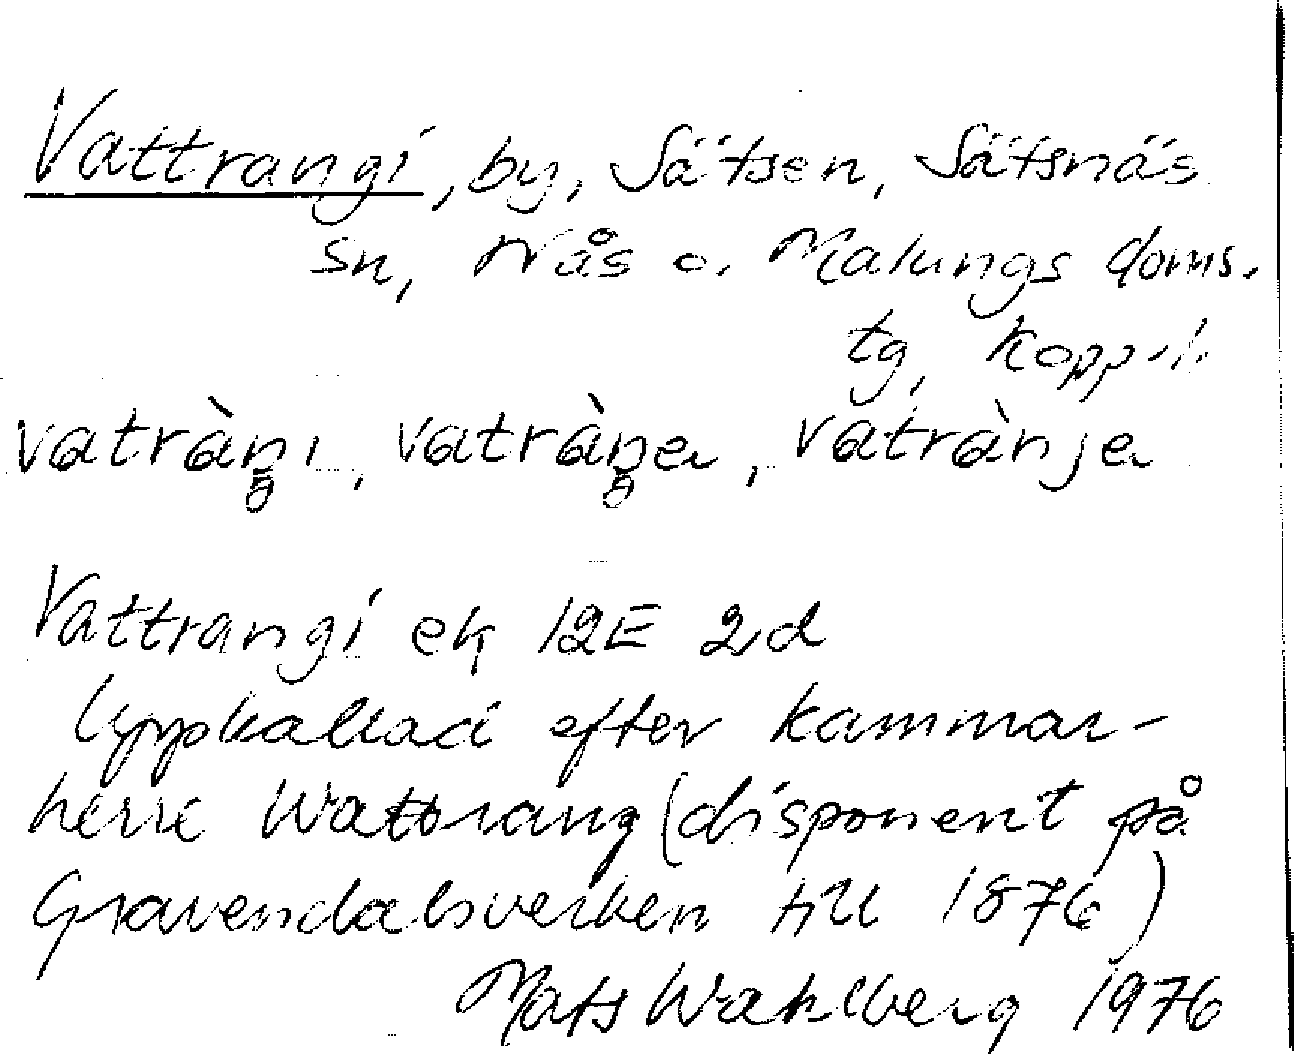 Vattrangi, by, Sätsen, Sätsnäs
sn, Nås o. Malungs doms.
tg, Kopp. l.
vatràŋı, vatràŋer, vatrànjer
Vattrangi ek 12E 2d
Uppkallad efter kammar-
herre Wattrang (disponent på
Gravendalsverken till 1876)
Mats Wahlberg 1976